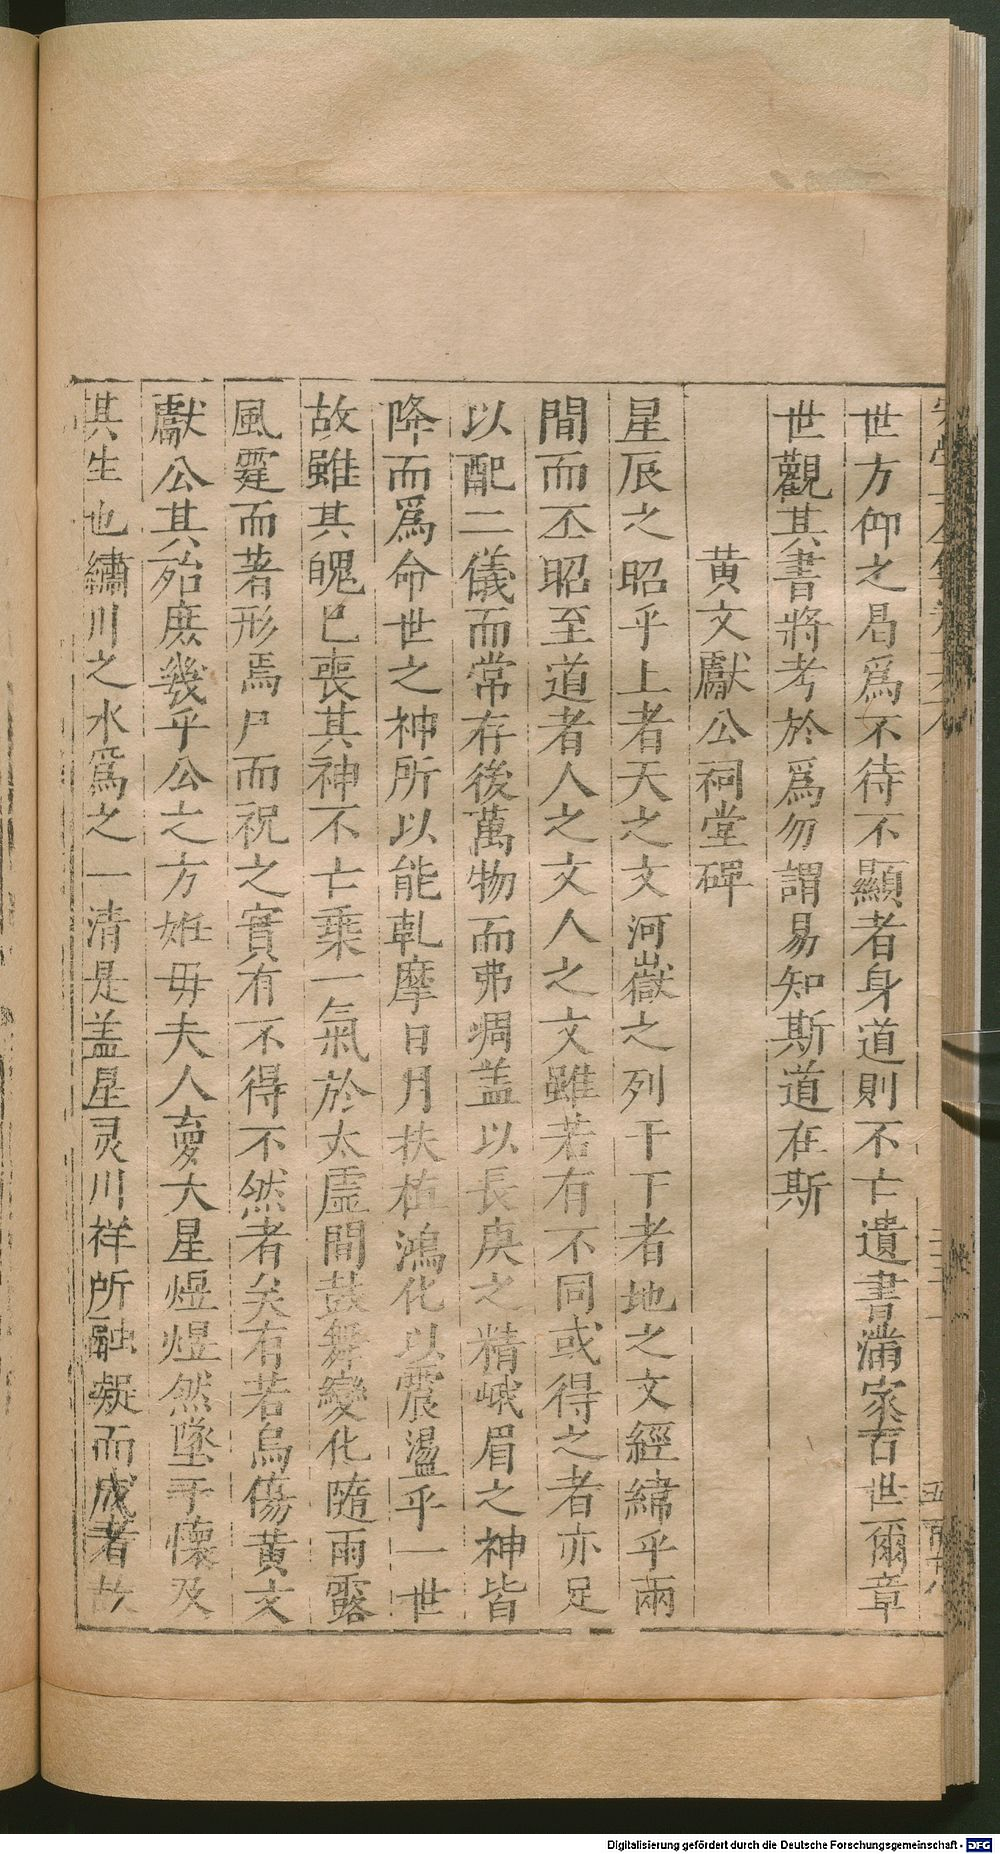 世方仰之曷為不待不顯者身道則不亡遺書滿家百世爾章
世觀其書將考於為勿謂易知斯道在斯
黄文獻公祠堂碑
星辰之昭乎上者天之文河嶽之列于下者地之文經緯乎兩
間而丕昭至道者人之文人之文雖若有不同或得之者亦足
以配二儀而常存後萬物而弗凋盖以長庚之精峨眉之神皆
降而為命世之神所以能軋摩日月扶植鴻化以震盪乎一世
故雖其魄已喪其神不亡乘一氣於太虛間鼓舞變化隨雨露
風霆而著形焉尸而祝之實有不得不然者矣有若烏傷黄文
獻公其殆庶幾乎公之方姙毋夫人夢大星煜煜然墜于懷及
其生也繡川之水為之一清是盖星灵川祥所融凝而成者故
Digitalisierung gefördert durch die Deutsche Forschungsgemeinschaft - DFG